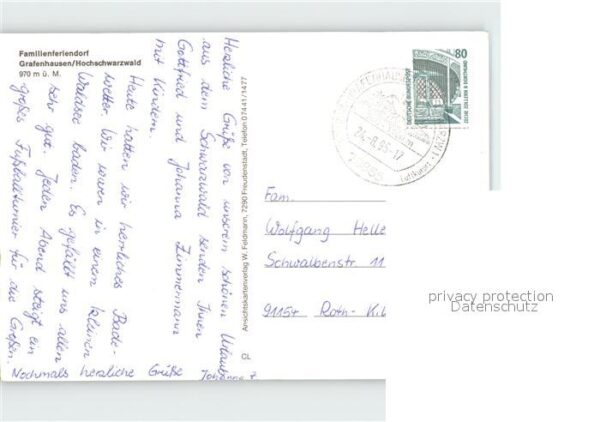 Familienferiendorf
Grafenhausen/Hochschwarzwald
970 m ü. M.
Herzliche Grüße von unserem schönen Urlaub
aus dem Schwarzwald senden Ihnen
Gottfried und Johanna Zimmermann
mit Kindern.
Heute hatten wir herrliches Bade-
wetter. Wir waren in einem kleinen
Waldsee baden. Es gefällt uns allen
sehr gut. Jeden Abend steigt ein
großes Fußballturnier für die Großen.
Nochmals herzliche Grüße Johanna Z
Ansichtskartenverlag W. Feldmann, 7290 Freudenstadt, Telefon 07441/1477
CL
80
DEUTSCHE BUNDESPOST
ZECHE ZOLLERN II DORTMUND
GRAFENHAUSEN
Luftkurort
Fam.
Wolfgang Helle
Schwalbenstr 11
91154 Roth-Kil
privacy protection
Datenschutz